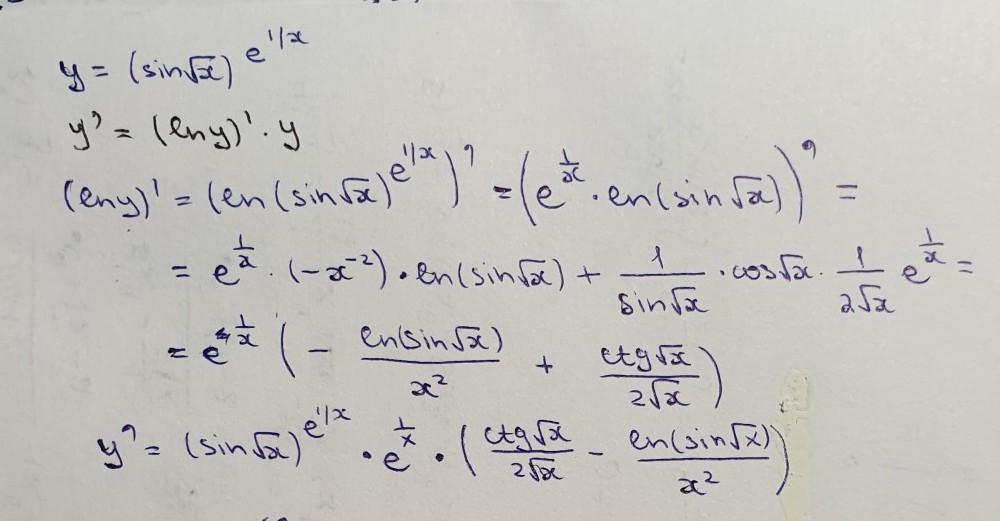 y = (sin√x)^(e^(1/x))
y' = (ln y)' · y
(ln y)' = (ln (sin√x)^(e^(1/x)))' = (e^(1/x) · ln(sin √x))' =
= e^(1/x) · (-x^(-2)) · ln(sin√x) + 1/(sin√x) · cos√x · 1/(2√x) e^(1/x) =
= e^(1/x) ( - ln(sin√x)/x² + ctg√x/(2√x) )
y' = (sin√x)^(e^(1/x)) · e^(1/x) · ( ctg√x/(2√x) - ln(sin√x)/x² )